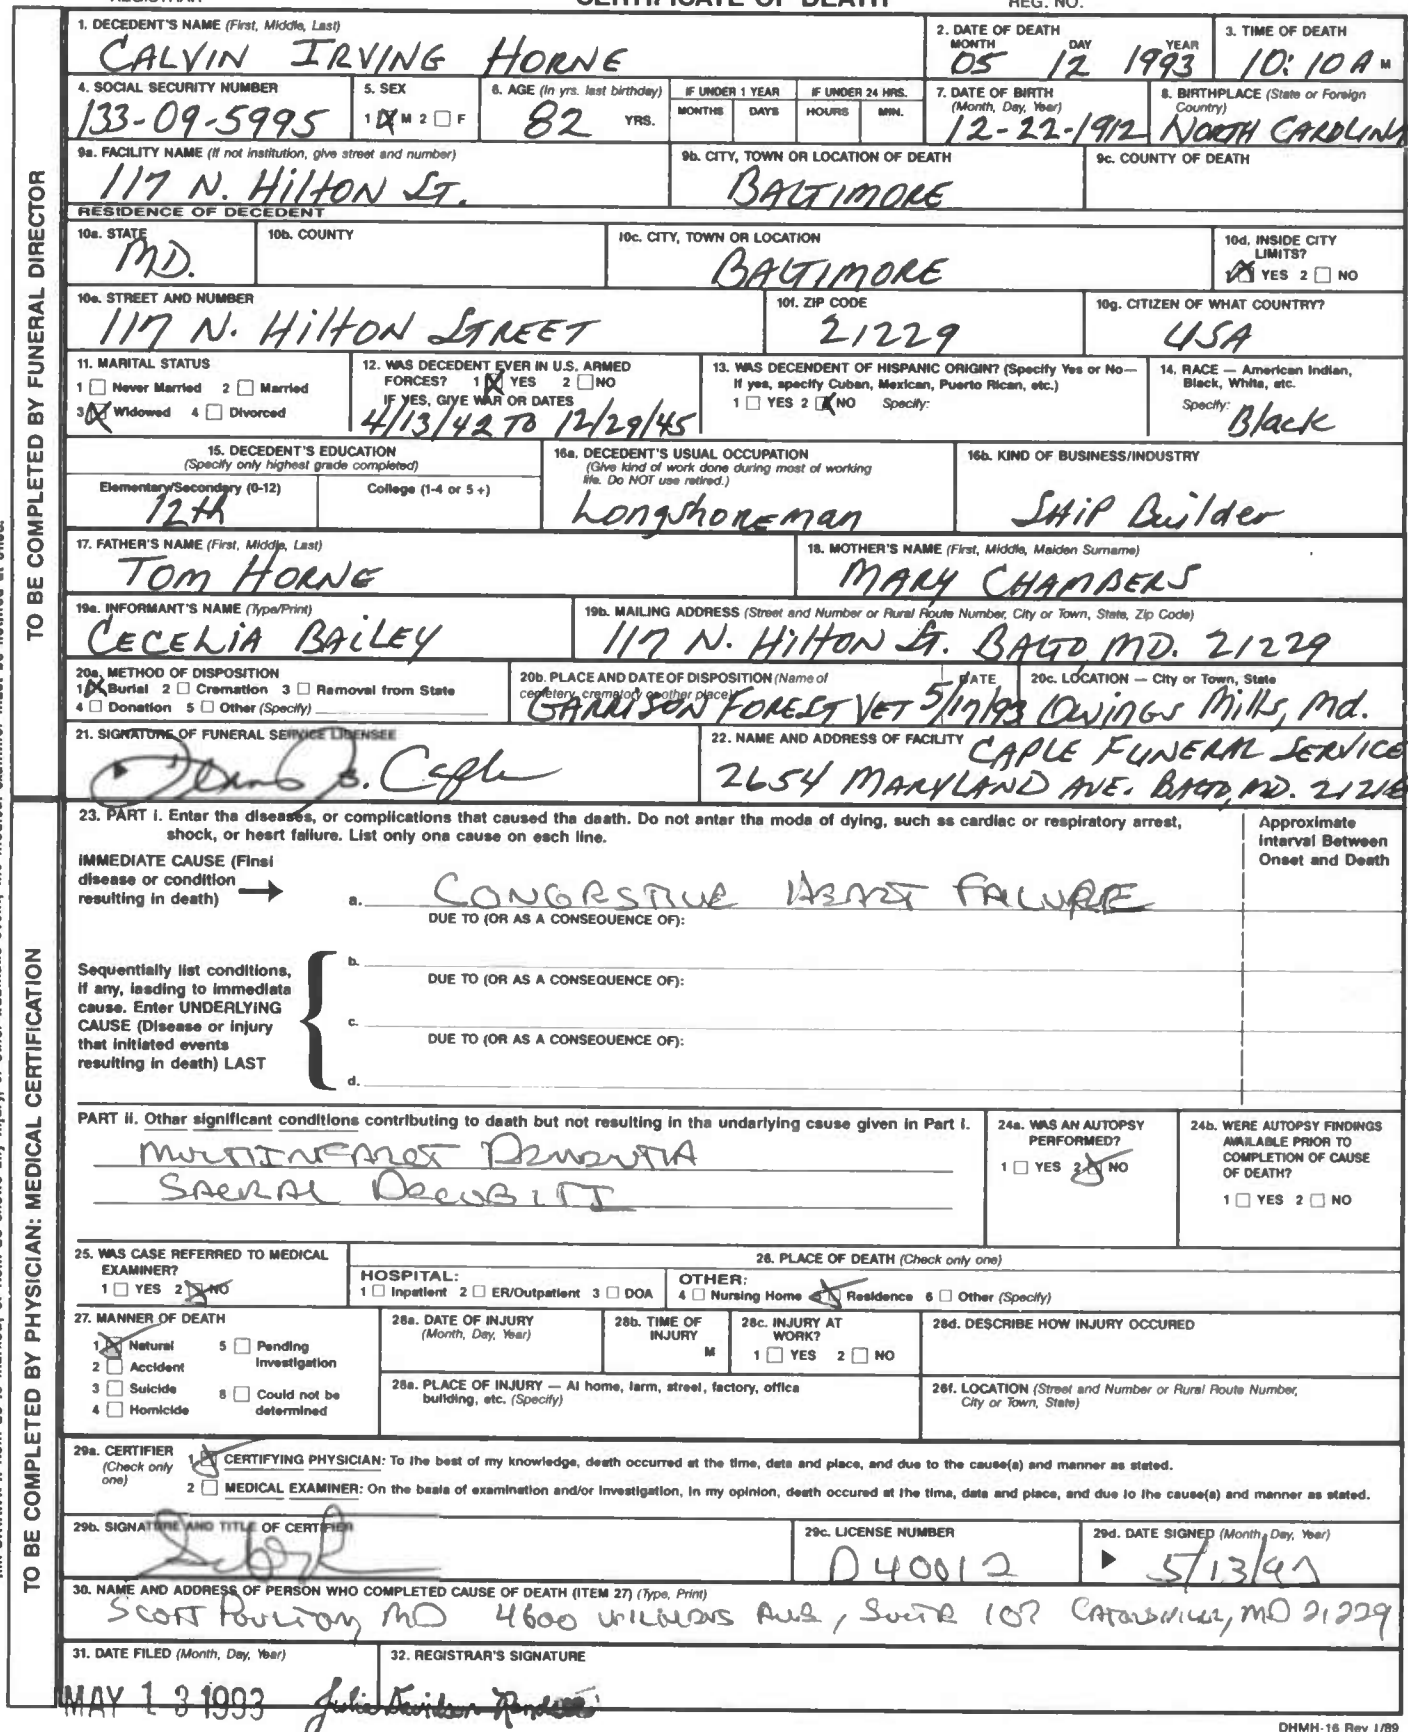 CERTIFICATE OF DEATH
REGISTRAR REG. NO.
1. DECEDENT'S NAME (First, Middle, Last) CALVIN IRVING HORNE
2. DATE OF DEATH MONTH DAY YEAR 05 12 1993
3. TIME OF DEATH 10:10 A M
4. SOCIAL SECURITY NUMBER 133-09-5995
5. SEX 1 ☒ M 2 ☐ F
6. AGE (In yrs. last birthday) 82 YRS.
IF UNDER 1 YEAR MONTHS DAYS
IF UNDER 24 HRS. HOURS MIN.
7. DATE OF BIRTH (Month, Day, Year) 12-22-1912
8. BIRTHPLACE (State or Foreign Country) NORTH CAROLINA
9a. FACILITY NAME (If not institution, give street and number) 117 N. Hilton St.
9b. CITY, TOWN OR LOCATION OF DEATH BALTIMORE
9c. COUNTY OF DEATH
RESIDENCE OF DECEDENT
10a. STATE MD.
10b. COUNTY
10c. CITY, TOWN OR LOCATION BALTIMORE
10d. INSIDE CITY LIMITS? 1 ☒ YES 2 ☐ NO
10e. STREET AND NUMBER 117 N. Hilton STREET
10f. ZIP CODE 21229
10g. CITIZEN OF WHAT COUNTRY? USA
11. MARITAL STATUS
1 ☐ Never Married 2 ☐ Married
3 ☒ Widowed 4 ☐ Divorced
12. WAS DECEDENT EVER IN U.S. ARMED FORCES? 1 ☒ YES 2 ☐ NO
IF YES, GIVE WAR OR DATES
4/13/42 TO 12/29/45
13. WAS DECENDENT OF HISPANIC ORIGIN? (Specify Yes or No—
If yes, specify Cuban, Mexican, Puerto Rican, etc.)
1 ☐ YES 2 ☒ NO Specify:
14. RACE — American Indian, Black, White, etc.
Specify: Black
15. DECEDENT'S EDUCATION
(Specify only highest grade completed)
Elementary/Secondary (0-12) 12th
College (1-4 or 5+)
16a. DECEDENT'S USUAL OCCUPATION
(Give kind of work done during most of working life. Do NOT use retired.)
Longshoreman
16b. KIND OF BUSINESS/INDUSTRY
SHip Builder
17. FATHER'S NAME (First, Middle, Last) TOM HORNE
18. MOTHER'S NAME (First, Middle, Maiden Surname) MARY CHAMBERS
19a. INFORMANT'S NAME (Type/Print) CECELIA BAILEY
19b. MAILING ADDRESS (Street and Number or Rural Route Number, City or Town, State, Zip Code)
117 N. Hilton St. BALTO, MD. 21229
20a. METHOD OF DISPOSITION
1 ☒ Burial 2 ☐ Cremation 3 ☐ Removal from State
4 ☐ Donation 5 ☐ Other (Specify)
20b. PLACE AND DATE OF DISPOSITION (Name of cemetery, crematory or other place) DATE
GARRISON FOREST VET 5/17/93
20c. LOCATION — City or Town, State
Owings Mills, Md.
21. SIGNATURE OF FUNERAL SERVICE LICENSEE
22. NAME AND ADDRESS OF FACILITY CAPLE FUNERAL SERVICE
2654 MARYLAND AVE. BALTO, MD. 21218
TO BE COMPLETED BY FUNERAL DIRECTOR
23. PART I. Enter the diseases, or complications that caused the death. Do not enter the mode of dying, such as cardiac or respiratory arrest,
shock, or heart failure. List only one cause on each line.
Approximate Interval Between Onset and Death
IMMEDIATE CAUSE (Final disease or condition resulting in death) →
a. CONGESTIVE HEART FAILURE
DUE TO (OR AS A CONSEQUENCE OF):
Sequentially list conditions, if any, leading to immediate cause. Enter UNDERLYING CAUSE (Disease or injury that initiated events resulting in death) LAST
b.
DUE TO (OR AS A CONSEQUENCE OF):
c.
DUE TO (OR AS A CONSEQUENCE OF):
d.
PART II. Other significant conditions contributing to death but not resulting in the underlying cause given in Part I.
MULTIINFARCT DEMENTIA
SACRAL DECUBITI
24a. WAS AN AUTOPSY PERFORMED?
1 ☐ YES 2 ☒ NO
24b. WERE AUTOPSY FINDINGS AVAILABLE PRIOR TO COMPLETION OF CAUSE OF DEATH?
1 ☐ YES 2 ☐ NO
25. WAS CASE REFERRED TO MEDICAL EXAMINER?
1 ☐ YES 2 ☒ NO
26. PLACE OF DEATH (Check only one)
HOSPITAL:
1 ☐ Inpatient 2 ☐ ER/Outpatient 3 ☐ DOA
OTHER:
4 ☐ Nursing Home 5 ☒ Residence 6 ☐ Other (Specify)
27. MANNER OF DEATH
1 ☒ Natural 5 ☐ Pending Investigation
2 ☐ Accident
3 ☐ Suicide 6 ☐ Could not be determined
4 ☐ Homicide
28a. DATE OF INJURY (Month, Day, Year)
28b. TIME OF INJURY M
28c. INJURY AT WORK?
1 ☐ YES 2 ☐ NO
28d. DESCRIBE HOW INJURY OCCURED
28e. PLACE OF INJURY — At home, farm, street, factory, office building, etc. (Specify)
28f. LOCATION (Street and Number or Rural Route Number, City or Town, State)
29a. CERTIFIER (Check only one)
1 ☒ CERTIFYING PHYSICIAN: To the best of my knowledge, death occurred at the time, date and place, and due to the cause(s) and manner as stated.
2 ☐ MEDICAL EXAMINER: On the basis of examination and/or investigation, in my opinion, death occured at the time, date and place, and due to the cause(s) and manner as stated.
29b. SIGNATURE AND TITLE OF CERTIFIER
29c. LICENSE NUMBER D40012
29d. DATE SIGNED (Month, Day, Year) ▶ 5/13/93
30. NAME AND ADDRESS OF PERSON WHO COMPLETED CAUSE OF DEATH (ITEM 27) (Type, Print)
SCOTT POULTON, MD 4600 WILKENS AVE, SUITE 107 CATONSVILLE, MD 21229
31. DATE FILED (Month, Day, Year) MAY 13 1993
32. REGISTRAR'S SIGNATURE
TO BE COMPLETED BY PHYSICIAN: MEDICAL CERTIFICATION
DHMH-16 Rev 1/89